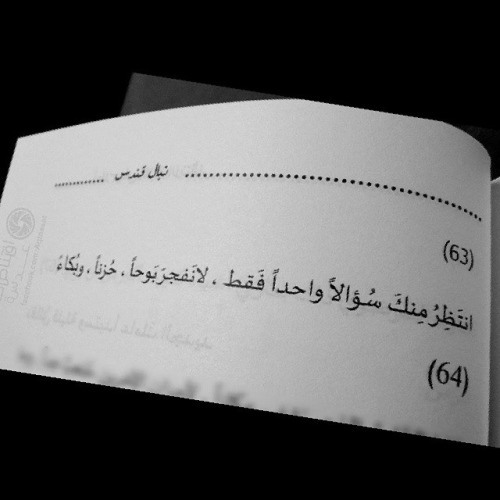 ................................ نبال قندس ............
(63)
انتَظِرُ مِنكَ سُؤالاً واحداً فَقط ، لانَفجرَ بَوحاً ، حُزناً ، وبُكاءُ
(64)